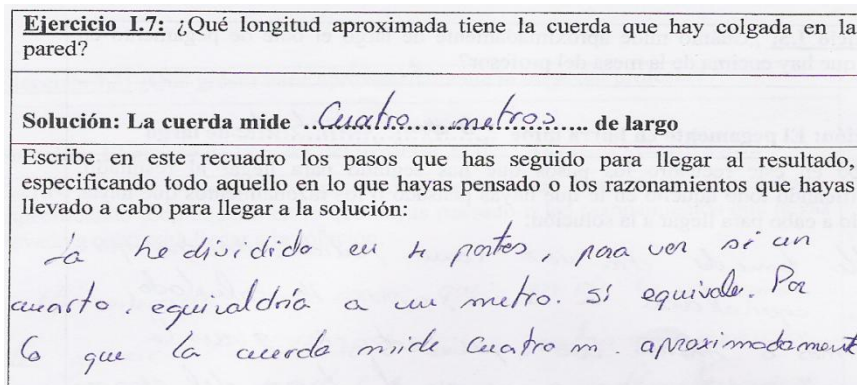 Ejercicio I.7: ¿Qué longitud aproximada tiene la cuerda que hay colgada en la
pared?
Solución: La cuerda mide Cuatro metros de largo
Escribe en este recuadro los pasos que has seguido para llegar al resultado,
especificando todo aquello en lo que hayas pensado o los razonamientos que hayas
llevado a cabo para llegar a la solución:
La he dividido en 4 partes, para ver si un
cuarto. equivaldría a un metro. sí equivale. Por
lo que la cuerda mide cuatro m. aproximadament